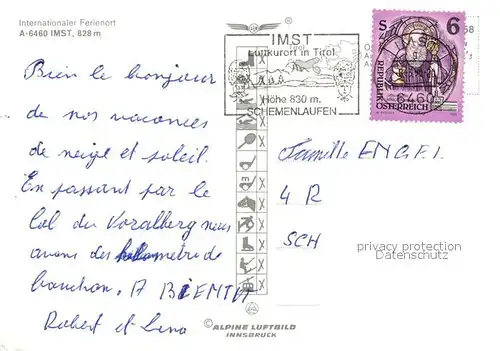 Internationaler Ferienort
A-6460 IMST, 828 m
IMST
Luftkurort in Tirol
Höhe 830 m.
SCHEMENLAUFEN
S 6
REPUBLIK
ÖSTERREICH
6460
58
Bien le bonjour
de nos vacances
de neige et soleil.
En passant par le
Col du Voralberg nous
avons des kilomètres de
bouchon. A BIENTÔT
Robert et
Famille ENGEL
4 R
SCH
privacy protection
Datenschutz
© ALPINE LUFTBILD
INNSBRUCK